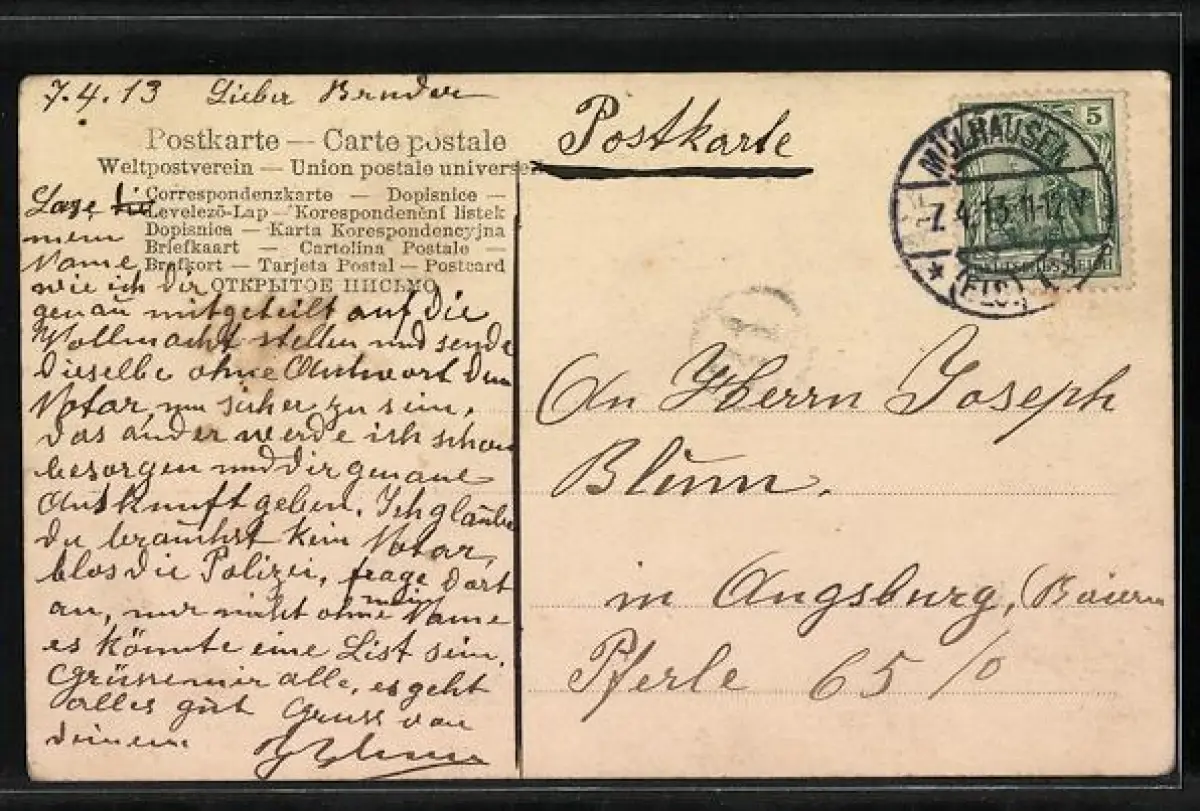 7.4.13 Lieber Bruder
Postkarte — Carte postale
Weltpostverein — Union postale universelle
Correspondenzkarte — Dopisnice —
Levelező-Lap — Korespondenční listek
Dopisnica — Karta Korespondencyjna
Briefkaart — Cartolina Postale —
Brefkort — Tarjeta Postal — Postcard
ОТКРЫТОЕ ПИСЬМО
Lasse
mein
Name
wie ich dir
genau mitgeteilt auf die
Vollmacht stellen und sende
dieselbe ohne Antwort dem
Notar, um sicher zu sein.
das ander werde ich schon
besorgen und dir genaue
Auskunft geben. Ich glaube
du brauchst kein Notar,
blos die Polizei, frage dort
an, nur nicht ohne mein Name
es könnte eine List sein.
Grüsse mir alle, es geht
alles gut Gruss von
deinem
Postkarte
MÜLHAUSEN
-7.4.13.11-12V
(ELS.)
5
DEUTSCHES REICH
An Herrn Joseph
Blum.
in Augsburg, (Baiern
Pferle 65 1/0